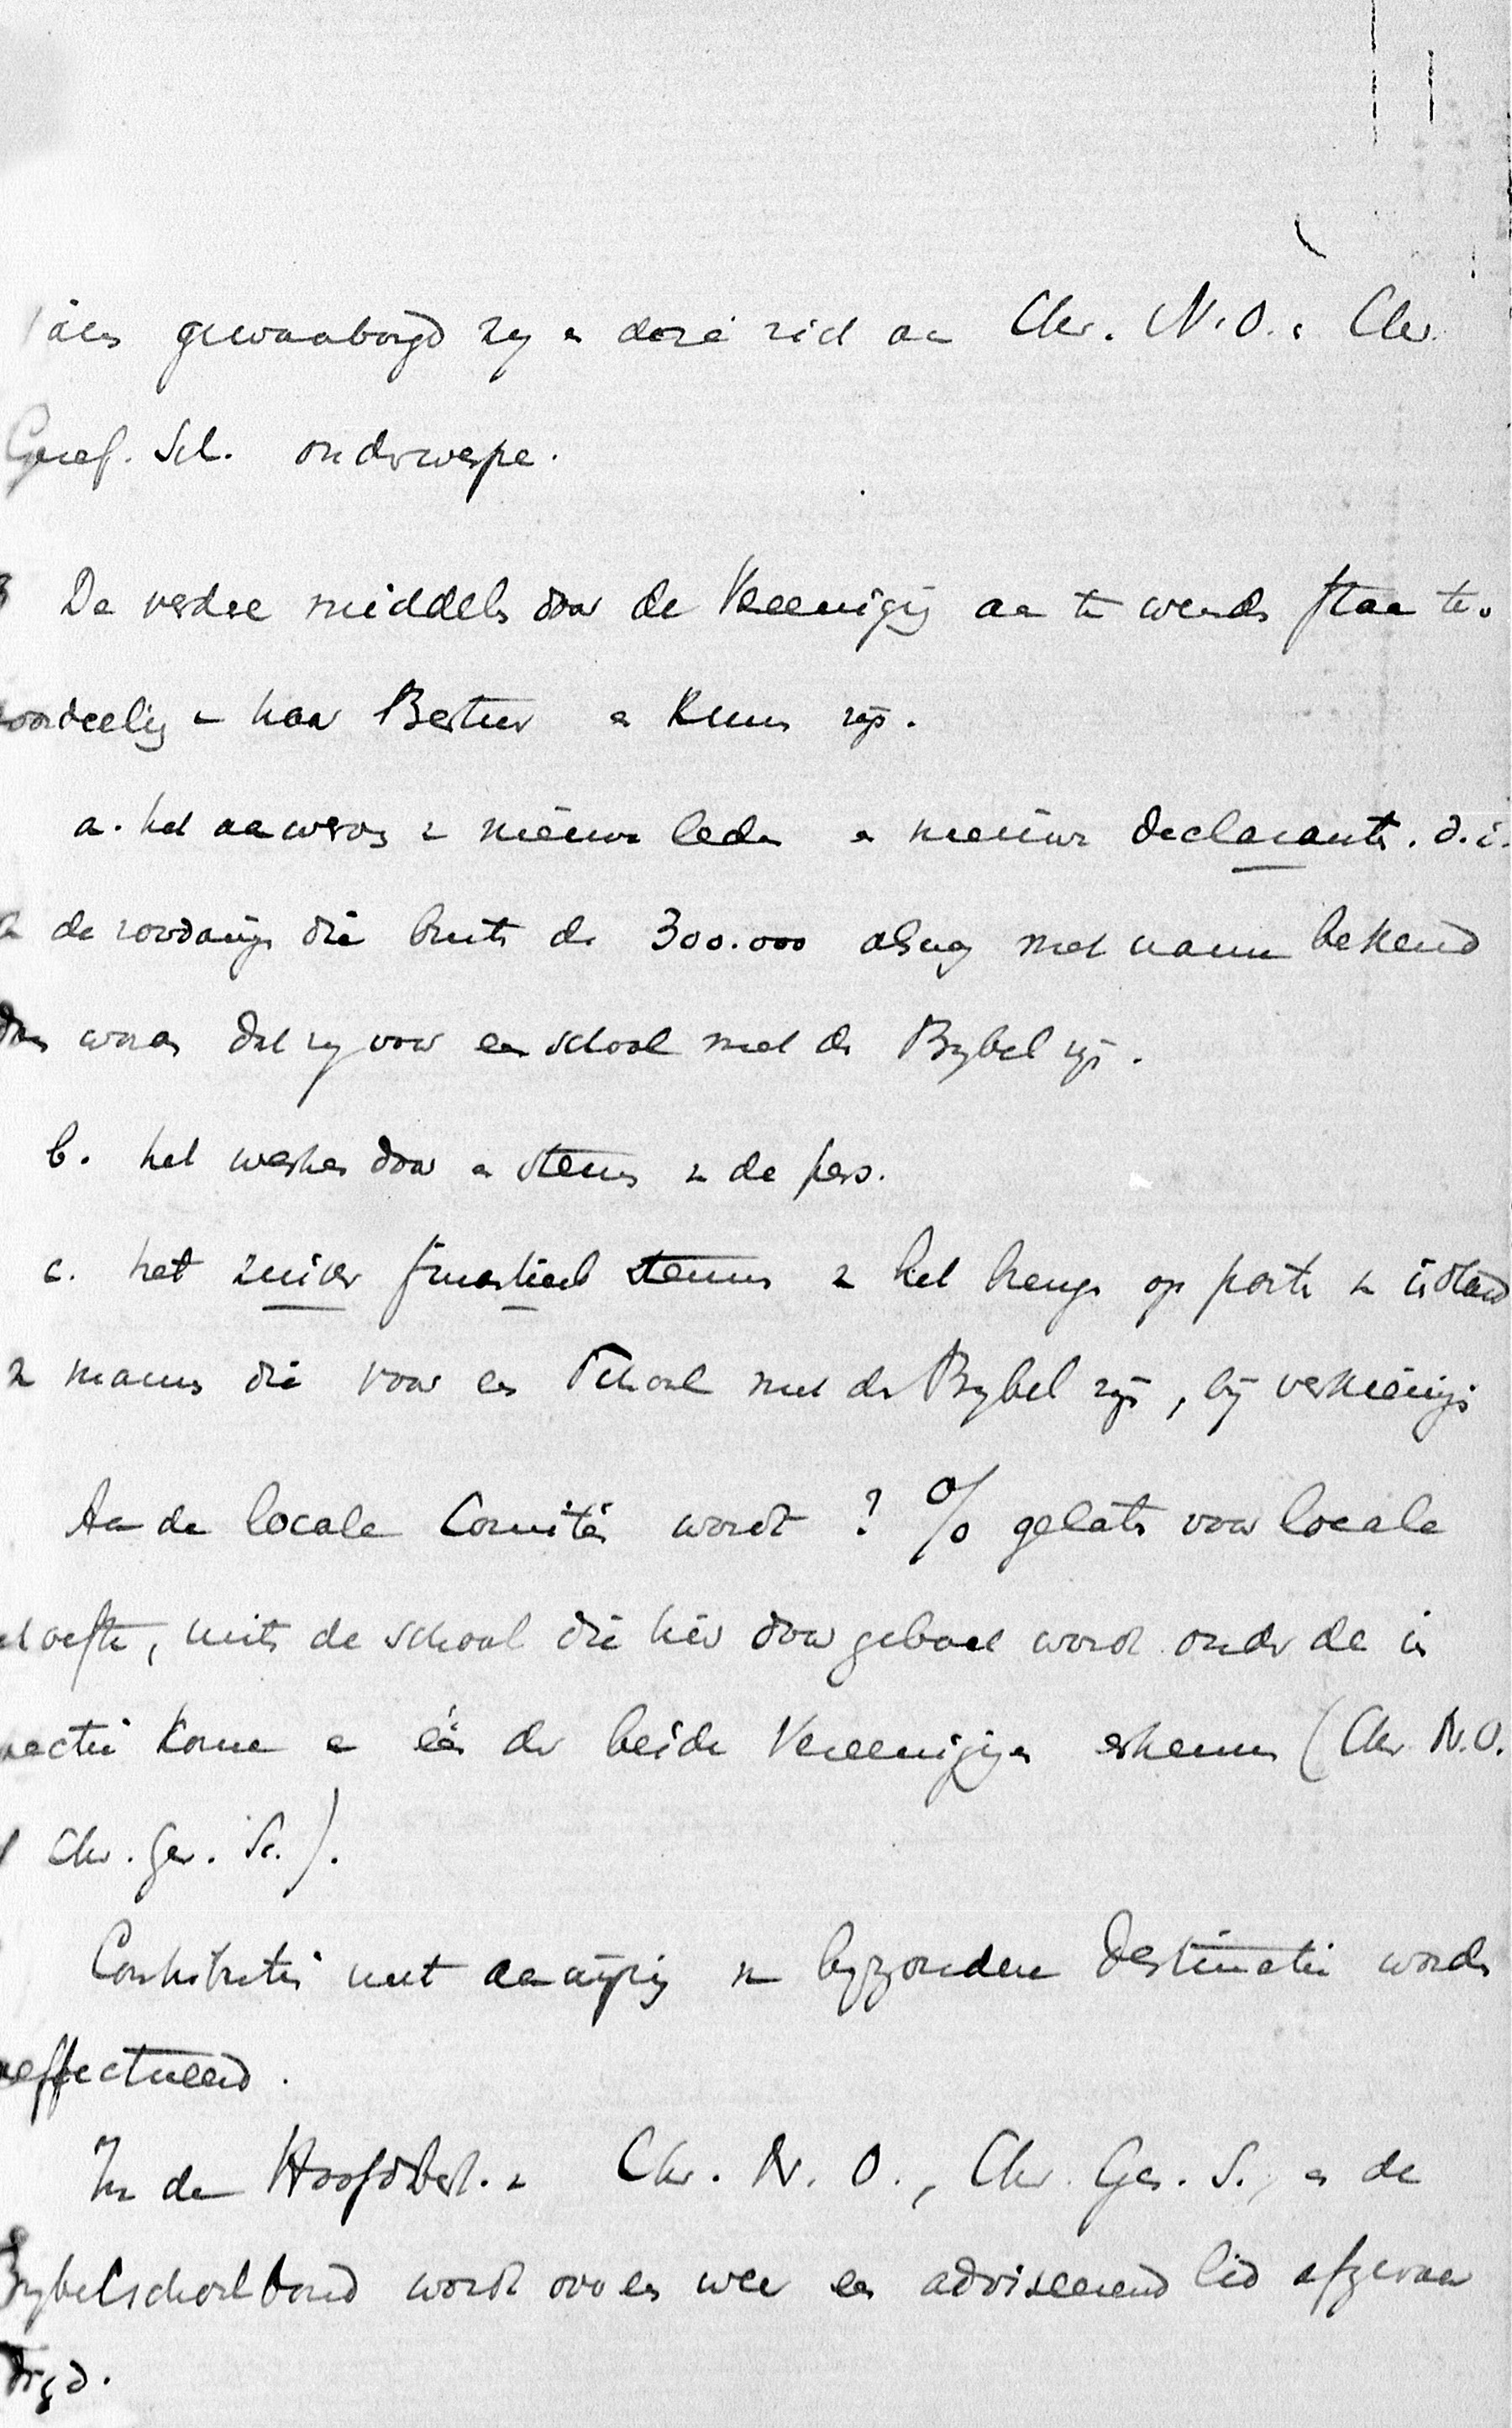 gewaaborgd zy en deze zich aan Chr. N.O. & Chr.
Geref. Sch. onderwerpe.
De verdere middelen door de Vereeniging aan te wenden staan te.
oordeeling van haar Bestuur en kunnen zijn.
a. het aanwerven van nieuwe leden en nieuwe declaranten. d.i.
de zoodanige die buiten de 300.000 alsnog met name bekend
waren dat zy voor een school met de Bybel zijn.
b. het werken door en steunen van de pers.
c. het zuiver financieel steunen van het brengen op posten van invloed
van mannen die voor een School met de Bybel zijn, bij verkiezingen
Aan de locale Comités wordt ? % gelaten voor locale
behoefte, mits de school die hier door gebaat wordt onder de in
spectie kome van één der beide Vereenigingen erkennen (Chr. N.O.
of Chr. Ger. Sc.).
Contributies met aanwijzing van byzondere destinatie worden
geeffectueerd.
In de Hoofdbest. van Chr. N. O., Chr. Ger. S., en de
Bybelschoolbond wordt over en weer een adviseerend lid afgevaar
digd.